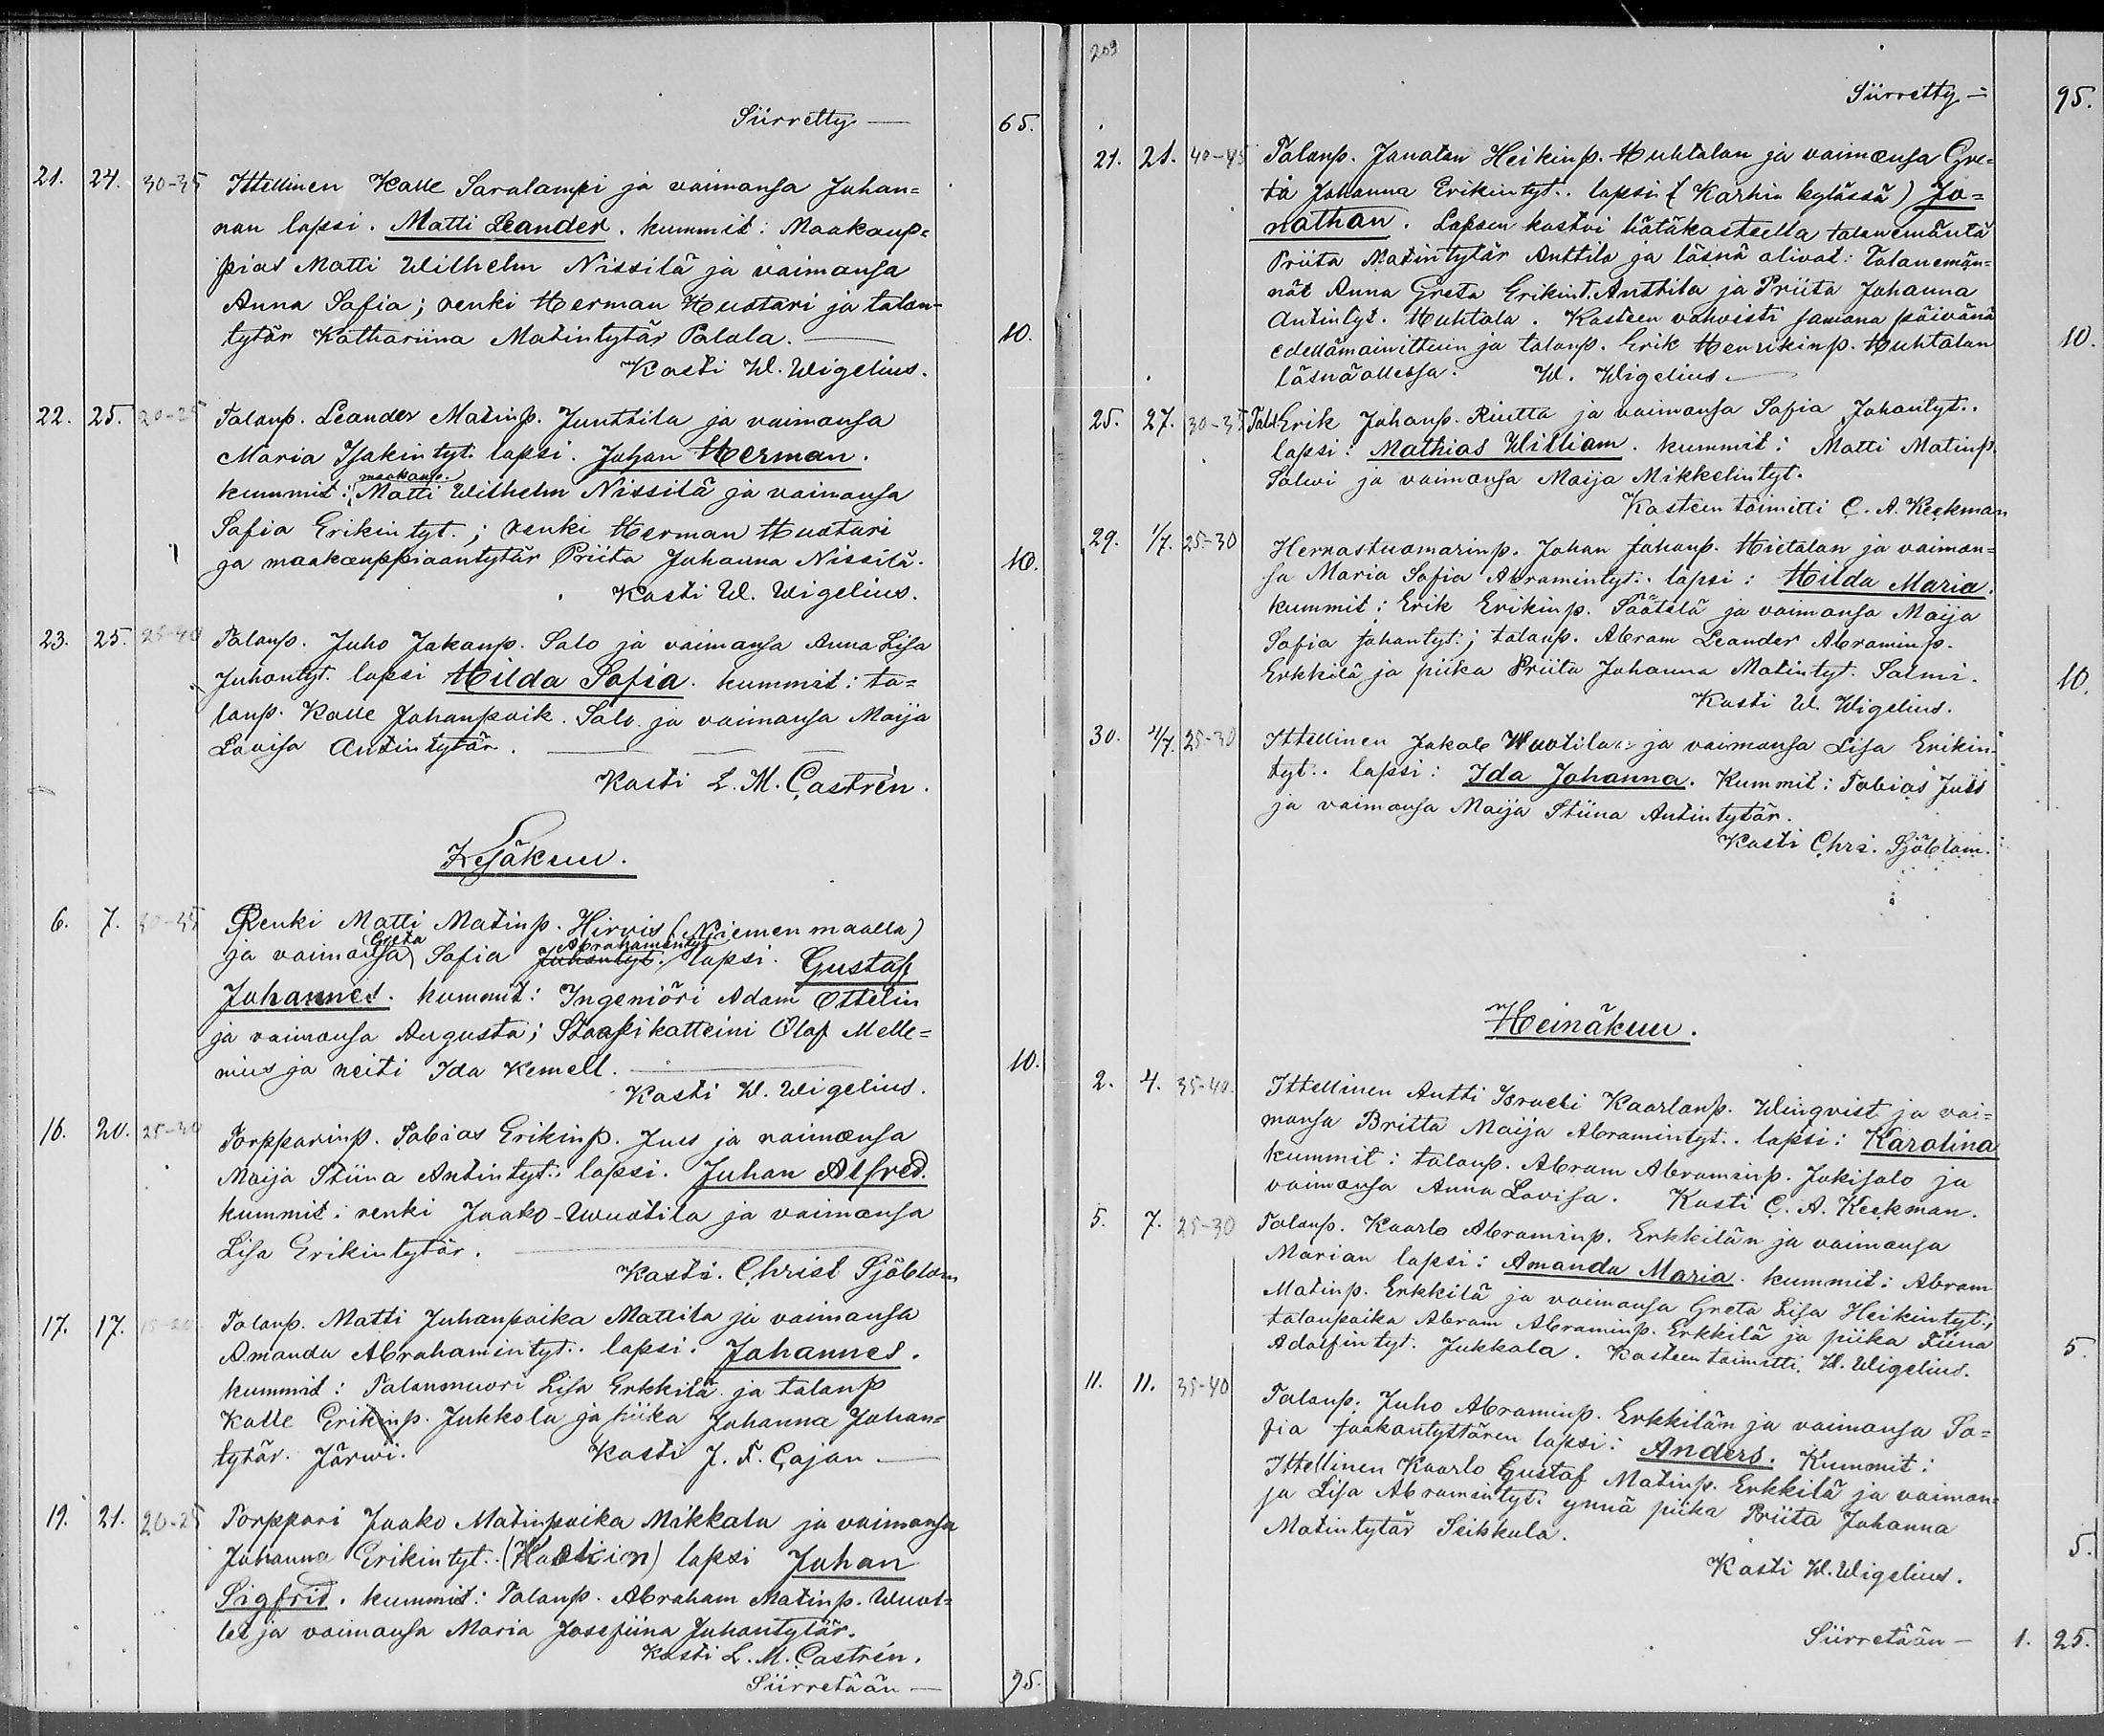 Siirretty — 65.
21. 24. 30-35 Ittellinen Kalle Saralampi ja vaimonsa Johan=
nan lapsi. Matti Leander. kummit: Maakaup=
pias Matti Wilhelm Nissilä ja vaimonsa
Anna Sofia; renki Herman Huotari ja talon-
tytär Kathariina Matintytär Palola. — 10.
Kasti W. Wigelius.
22. 25. 20-25 Talonp. Leander Matinp. Junttila ja vaimonsa
Maria Isakintyt. lapsi. Johan Herman.
maakaup.
kummit: Matti Wilhelm Nissilä ja vaimonsa
Sofia Erikintyt.; renki Herman Huotari
ja maakauppiaantytär Priita Johanna Nissilä. 10.
Kasti W. Wigelius.
23. 25. 25-40 Talonp. Juho Jakonp. Salo ja vaimonsa Anna Lisa
Juhontyt. lapsi Hilda Sofia. kummit: ta=
lonp. Kalle Johanpoik. Salo ja vaimonsa Maija
Lovisa Antintytär. —
Kasti L. M. Castrén.
Kesäkuu.
6. 7. 30-35 Renki Matti Matinp. Hirvis (Niemen maalla)
Greta Abrahamintyt
ja vaimonsa Sofia Juhontyt. lapsi. Gustaf
Johannes. kummit: Ingeniöri Adam Ottelin
ja vaimonsa Augusta; Staapikatteini Olof Melle=
nius ja neiti Ida Kemell. — 10.
Kasti W. Wigelius.
16. 20. 25-30 Torpparinp. Tobias Erikinp. Juus ja vaimonsa
Maija Stiina Antintyt. lapsi. Juhan Alfred.
kummit: renki Jaako Wuotila ja vaimonsa
Lisa Erikintytär. —
Kasti. Christ Sjöblom
17. 17. 15-20 Talonp. Matti Juhanpoika Mattila ja vaimonsa
Amanda Abrahamintyt. lapsi: Johannes.
kummit: Talonmuori Lisa Erkkilä ja talonp
Kalle Erikinp. Jukkola ja piika Johanna Johan=
tytär Järwi. Kasti J. F. Cajan —
19. 21. 20-25 Torppari Jaako Matinpoika Mikkola ja vaimonsa
Johanna Erikintyt. lapsi Juhan
Sigfrid. kummit: Talonp. Abraham Matinp. Wuot=
ja vaimonsa Maria Josefiina Juhontytär.
Kasti L. M. Castrén.
Siirretään — 95.
209
Siirretty = 95.
21. 21. 40-45 Talonp. Jonatan Heikinp. Huhtalan ja vaimonsa Gre=
ta Johanna Erikintyt. lapsi (Karhin kylässä) Jo=
nathan. Lapsen kastoi hätäkasteella talonemäntä
Priita Matintytär Anttila ja läsnä olivat: Talonemän=
nät Anna Greta Erikint. Anttila ja Priita Johanna
Antintyt. Huhtala. Kasteen vahvisti samana päivänä
edellämainittuin ja talonp. Erik Henrikinp. Huhtalan 10.
läsnäollessa. W. Wigelius —
25. 27. 30-35 Talo Erik Johanp. Riutta ja vaimonsa Sofia Johantyt.
lapsi: Mathias William. kummit: Matti Matinp.
Salwi ja vaimonsa Maija Mikkelintyt.
Kasteen toimitti C. A. Keckman
29. 1/7. 25-30 Herrastuomarinp. Johan Johanp. Hietalan ja vaimon=
sa Maria Sofia Abramintyt. lapsi: Hilda Maria.
kummit: Erik Erikinp. Säätelä ja vaimonsa Maija
Sofia Johantyt.; talonp. Abram Leander Abraminp.
Erkkilä ja piika Priita Johanna Matintyt. Salmi. 10.
Kasti W. Wigelius.
30. 4/7. 25-30 Ittellinen Jakob Wuotilan ja vaimonsa Lisa Erikin-
tyt. lapsi: Ida Johanna. Kummit: Tobias Juus
ja vaimonsa Maija Stiina Antintytär.
Kasti Chrs. Sjöblom.
Heinäkuu.
2. 4. 35-40. Ittellinen Antti Israeli Kaarlonp. Winqvist ja vai=
monsa Britta Maija Abramintyt. lapsi: Karolina
kummit: talonp. Abram Abraminp. Jokisalo ja
vaimonsa Anna Lovisa. Kasti C. A. Keckman.
5. 7. 25-30 Talonp. Kaarlo Abraminp. Erkkilän ja vaimonsa
Marian lapsi: Amanda Maria. kummit: Abram
Matinp. Erkkilä ja vaimonsa Greta Lisa Heikintyt.;
talonpoika Abram Abraminp. Erkkilä ja piika Tiina
Adolfintyt. Jukkola. Kasteen toimitti W. Wigelius. 5.
11. 11. 35-40 Talonp. Juho Abraminp. Erkkilän ja vaimonsa So=
fia Jaakontyttären lapsi: Anders. Kummit:
Ittellinen Kaarlo Gustaf Matinp. Erkkilä ja vaimon=
sa Lisa Abramintyt. ynnä piika Priita Johanna
Matintytär Seikkula. 5.
Kasti W. Wigelius.
Siirretään — 1. 25.